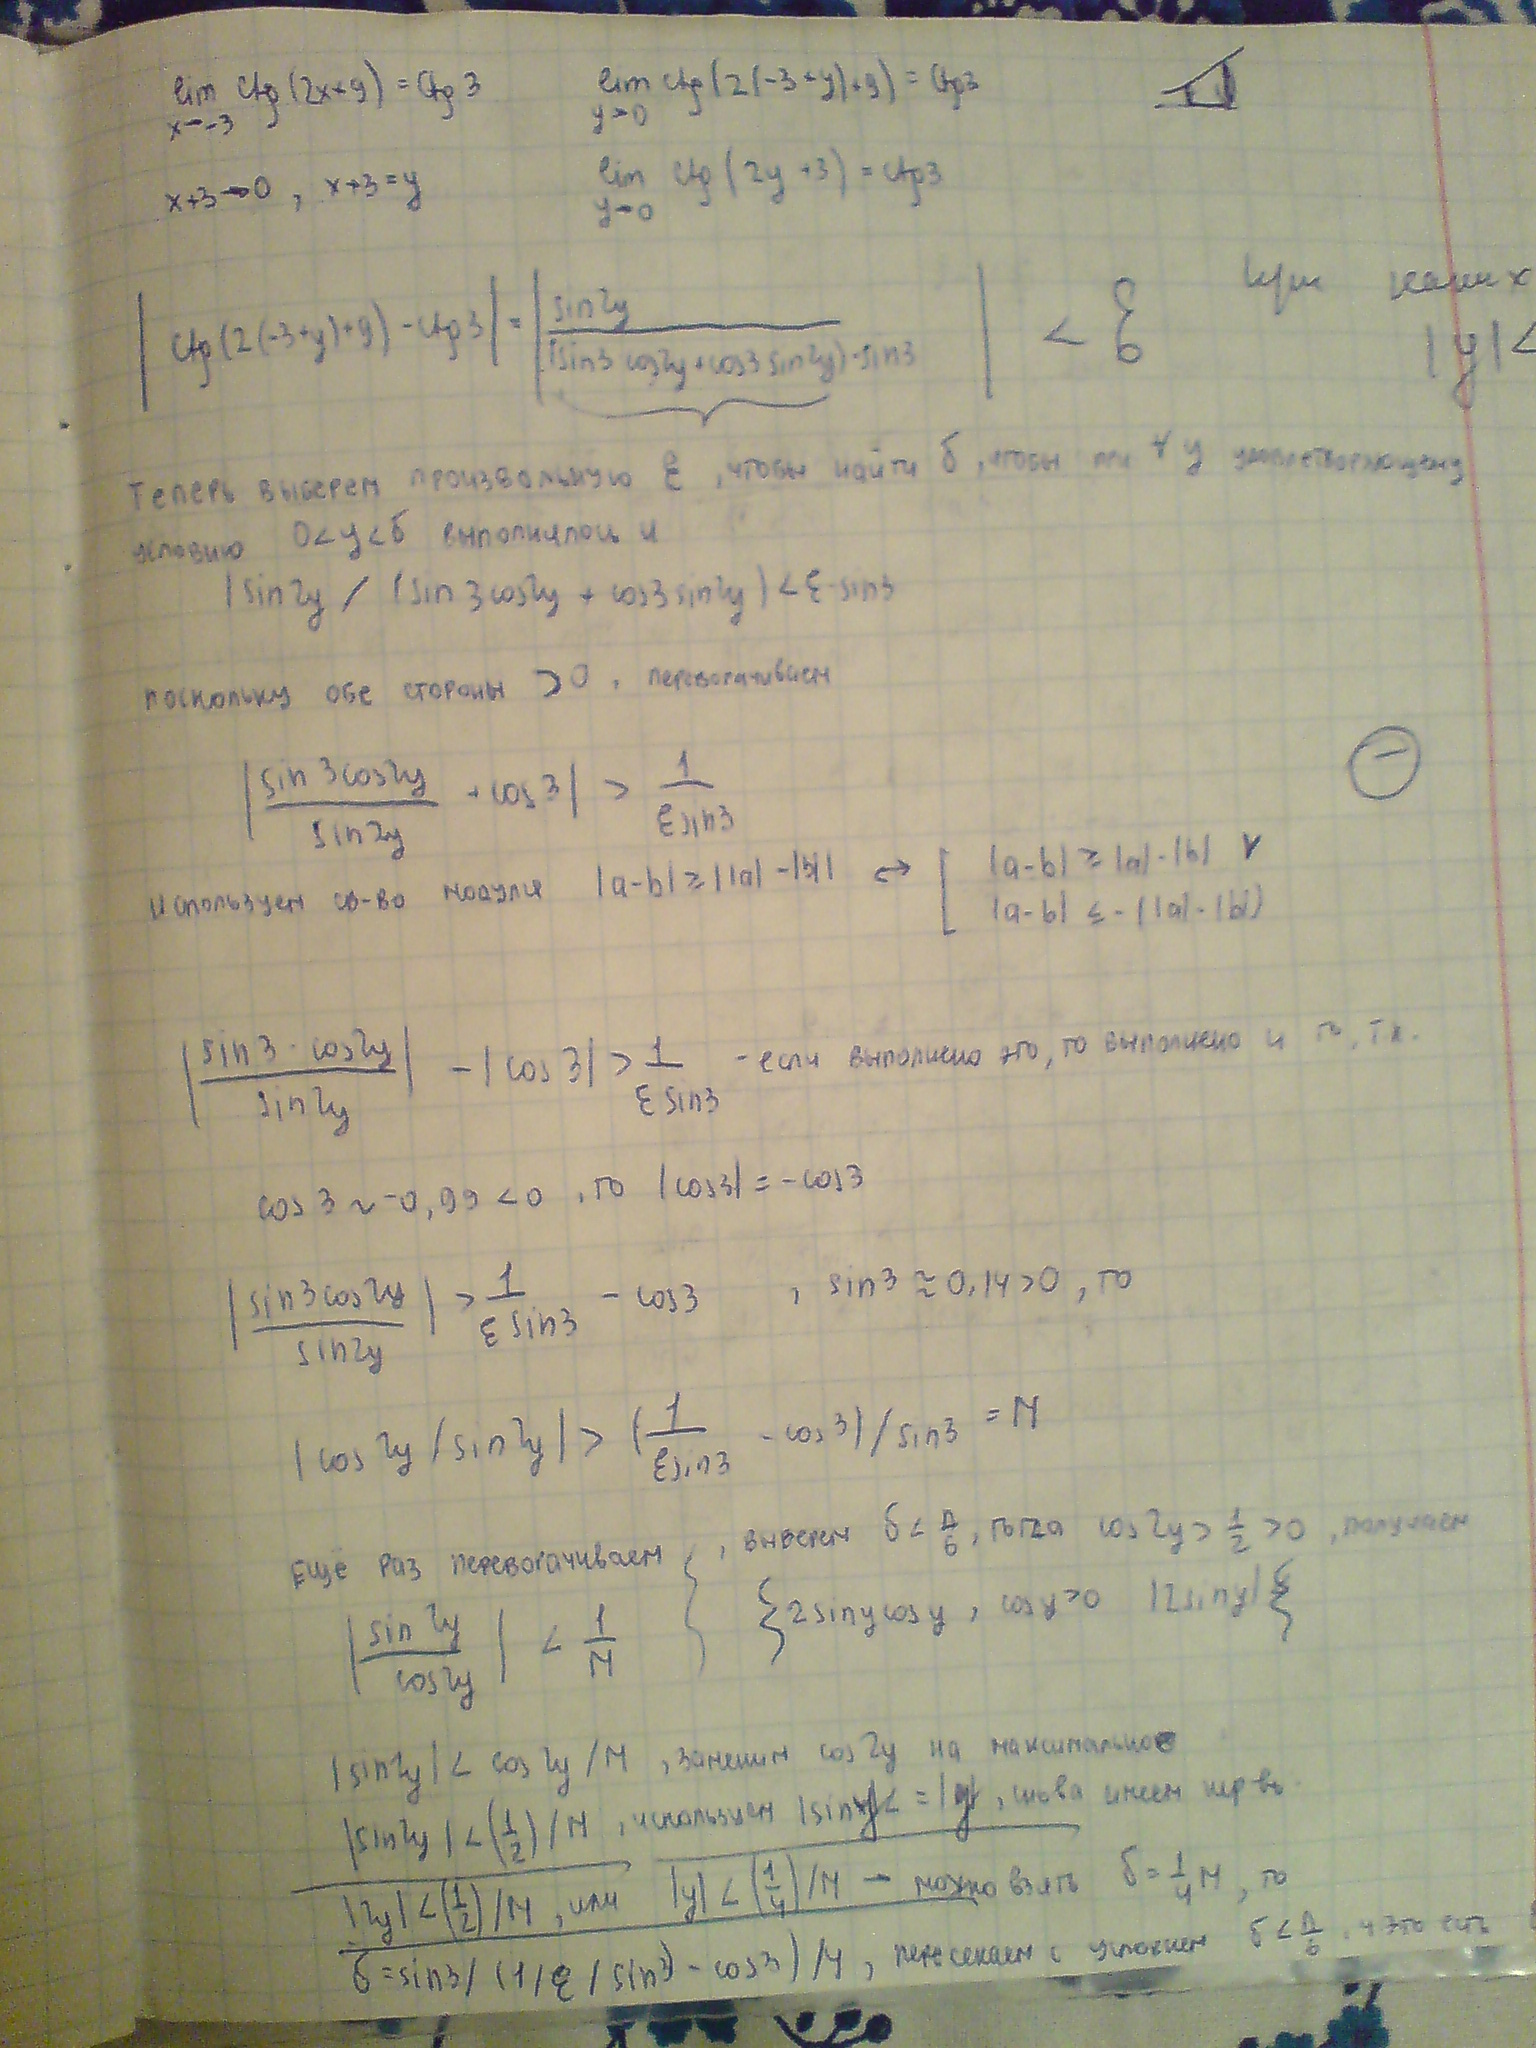 lim ctg(2x+9) = ctg3
x→-3
lim ctg(2(-3+y)+9) = ctg3
y→0
x+3→0, x+3=y
lim ctg(2y+3) = ctg3
y→0
|ctg(2(-3+y)+9) - ctg3| = |sin2y / (sin3 cos2y + cos3 sin2y)·sin3| < ε при каких
|y|<
Теперь выберем произвольную ε, чтобы найти δ, чтобы при ∀ y удовлетворяющему
условию 0<y<δ выполнялось и
|sin2y / (sin3cos2y + cos3sin2y)| < ε·sin3
поскольку обе стороны >0, переворачиваем
|sin3cos2y / sin2y + cos3| > 1 / εsin3
используем св-во модуля |a-b| ≥ ||a|-|b|| ↔ [ |a-b| ≥ |a|-|b| ∨
|a-b| ≤ -(|a|-|b|)
|sin3·cos2y / sin2y| - |cos3| > 1 / εsin3 - если выполнено это, то выполнено и то, т.к.
cos3 ~ -0,99 < 0, то |cos3| = -cos3
|sin3cos2y / sin2y| > 1 / εsin3 - cos3, sin3 ≈ 0,14 > 0, то
|cos2y / sin2y| > (1 / εsin3 - cos3) / sin3 = M
Ещё раз переворачиваем }, выберем δ < π/6, тогда cos2y > 1/2 > 0, получаем
|sin2y / cos2y| < 1/M } {2sinycosy, cosy>0 |2siny|}
|sin2y| < cos2y / M, заменим cos2y на максимальное
|sin2y| < (1/2)/M, используем |siny| <= |y|, снова имеем нер-во
|2y| < (1/2)/M, или |y| < (1/4)/M - можно взять δ = 1/4 M, то
δ = sin3 / (1/ε/sin3 - cos3) / 4, пересекаем с условием δ < π/6, и это есть